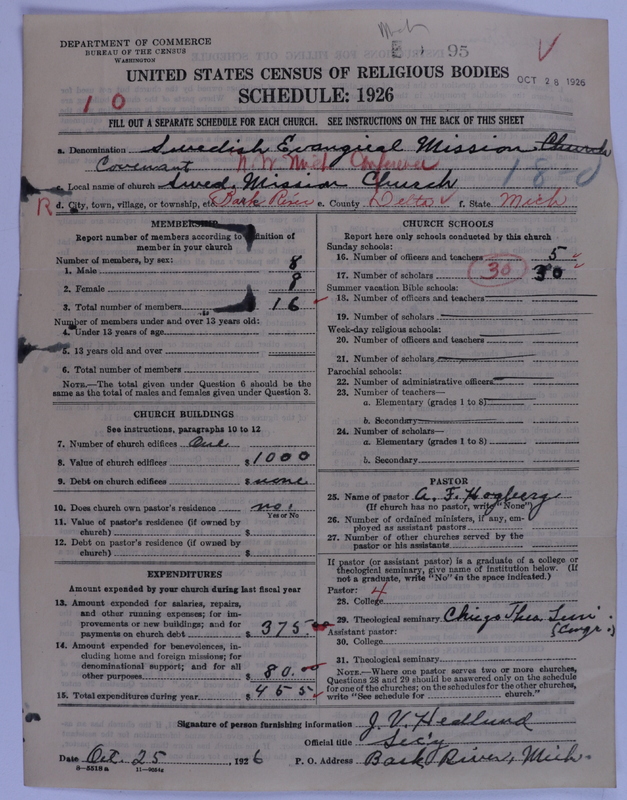 Mich
95
DEPARTMENT OF COMMERCE
BUREAU OF THE CENSUS
WASHINGTON
UNITED STATES CENSUS OF RELIGIOUS BODIES
OCT 28 1926
SCHEDULE: 1926
10
FILL OUT A SEPARATE SCHEDULE FOR EACH CHURCH. SEE INSTRUCTIONS ON THE BACK OF THIS SHEET
a. Denomination Swedish Evangical Mission Church
Covenant N.W. Mich Conference
18-0
c. Local name of church Swed. Mission Church
R d. City, town, village, or township, etc. Bark River e. County Delta f. State Mich
MEMBERSHIP
Report number of members according to definition of member in your church
Number of members, by sex:
1. Male 8
2. Female 8
3. Total number of members 16
Number of members under and over 13 years old:
4. Under 13 years of age
5. 13 years old and over
6. Total number of members
NOTE.—The total given under Question 6 should be the same as the total of males and females given under Question 3.
CHURCH BUILDINGS
See instructions, paragraphs 10 to 12
7. Number of church edifices One
8. Value of church edifices $1000
9. Debt on church edifices $none
10. Does church own pastor's residence no.
Yes or No
11. Value of pastor's residence (if owned by church) $
12. Debt on pastor's residence (if owned by church) $
EXPENDITURES
Amount expended by your church during last fiscal year
13. Amount expended for salaries, repairs, and other running expenses; for improvements or new buildings; and for payments on church debt $375.00
14. Amount expended for benevolences, including home and foreign missions; for denominational support; and for all other purposes $80.00
15. Total expenditures during year $455
CHURCH SCHOOLS
Report here only schools conducted by this church
Sunday schools:
16. Number of officers and teachers 5
17. Number of scholars 30 30
Summer vacation Bible schools:
18. Number of officers and teachers
19. Number of scholars
Week-day religious schools:
20. Number of officers and teachers
21. Number of scholars
Parochial schools:
22. Number of administrative officers
23. Number of teachers—
a. Elementary (grades 1 to 8)
b. Secondary
24. Number of scholars—
a. Elementary (grades 1 to 8)
b. Secondary
PASTOR
25. Name of pastor A. F. Hogberg
(If church has no pastor, write "None")
26. Number of ordained ministers, if any, employed as assistant pastors
27. Number of other churches served by the pastor or his assistants
If pastor (or assistant pastor) is a graduate of a college or theological seminary, give name of institution below. (If not a graduate, write "No" in the space indicated.)
Pastor: 4
28. College
29. Theological seminary Chicgo Theo. Semi.
(Congr.)
Assistant pastor:
30. College
31. Theological seminary
NOTE.—Where one pastor serves two or more churches, Questions 28 and 29 should be answered only on the schedule for one of the churches; on the schedules for the other churches, write "See schedule for church."
Signature of person furnishing information J. V. Hedlund
Official title Sec'y
Date Oct. 25, 1926 P. O. Address Bark River, Mich.
8—5518 a